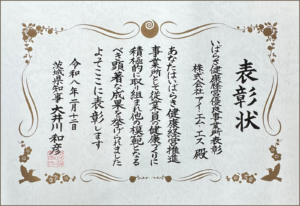 表彰状
いばらき健康経営優良事業所表彰
株式会社アイ・エム・エス 殿
あなたはいばらき健康経営推進
事業所として従業員の健康づくりに
積極的に取り組まれ他の模範となる
べき顕著な成果を挙げられました
よってここに表彰します
令和八年二月十二日
茨城県知事 大井川和彦